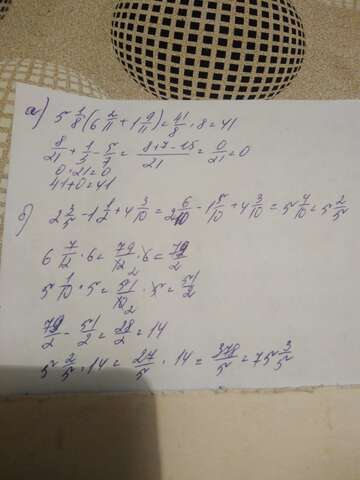 а) 5 1/8 (6 2/11 + 1 9/11) = 41/8 · 8 = 41
8/21 + 1/3 - 5/7 = (8+7-15)/21 = 0/21 = 0
0 · 21 = 0
41+0=41
б) 2 3/5 - 1 1/2 + 4 3/10 = 2 6/10 - 1 5/10 + 4 3/10 = 5 4/10 = 5 2/5
6 7/12 · 6 = 79/12 · 6 = 79/2
5 1/10 · 5 = 51/10 · 5 = 51/2
79/2 - 51/2 = 28/2 = 14
5 2/5 · 14 = 27/5 · 14 = 378/5 = 75 3/5